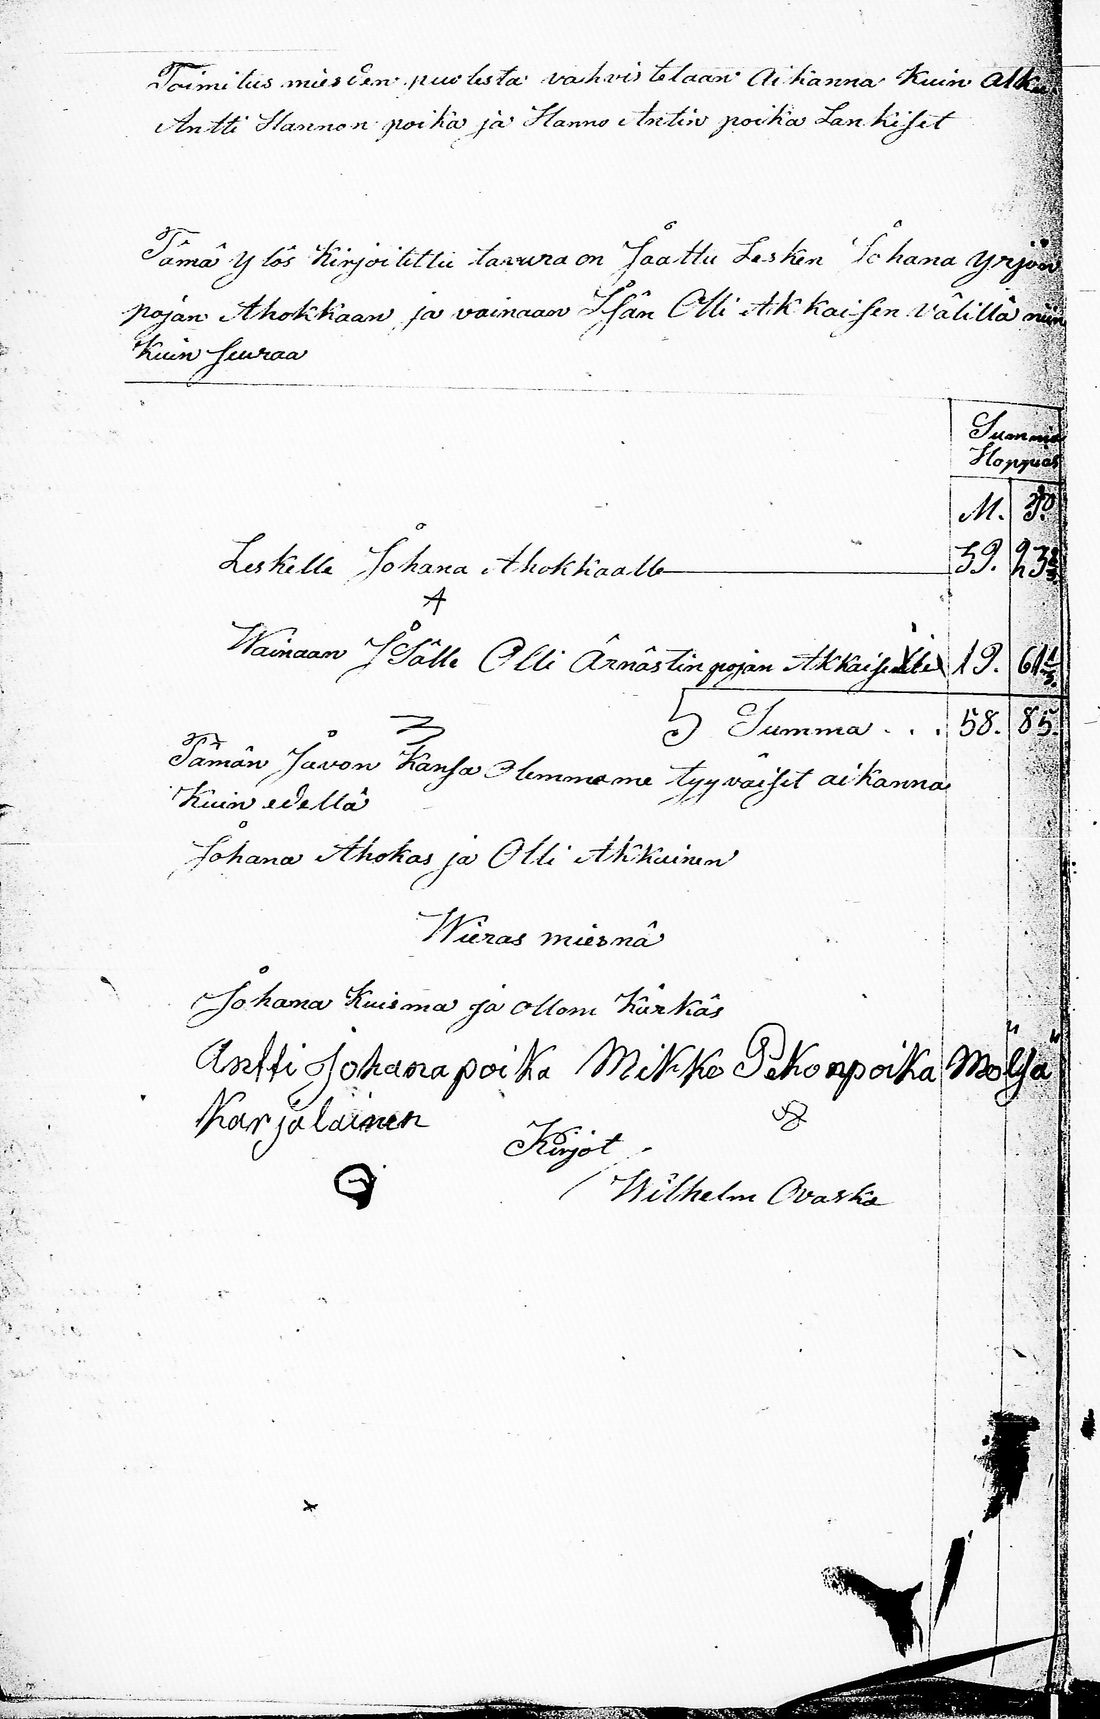 Toimitus miesden puolesta vahvistelaan Aikanna Kuin Alku
Antti Hannon poika ja Hanno Antin poika Lankiset
Tämä ylös Kirjoitettu tavura on Jaattu Lesken Johana Yrjön
pojan Ahokkaan ja vainaan Isän Olli Akkaisen Välillä niin
Kuin seuraa
Summa
Hoppias
M. P.
Leskelle Johana Ahokkaalle 39. 23 2/3.
Wainaan Isälle Olli Ärnästin pojan Akkaiselle 19. 61 1/3.
Summa . . . 58. 85.
Tämän Javon Kansa Olemmame tyyväiset aikanna
Kuin edellä
Johana Ahokas ja Olli Akkainen
Wieras miesnä
Johana Kuisma ja ollom Kärkäs
Antti Johanapoika Mikko Pekonpoika Mölsä
Karjalainen
Kirjot
Wilhelm Ovaska